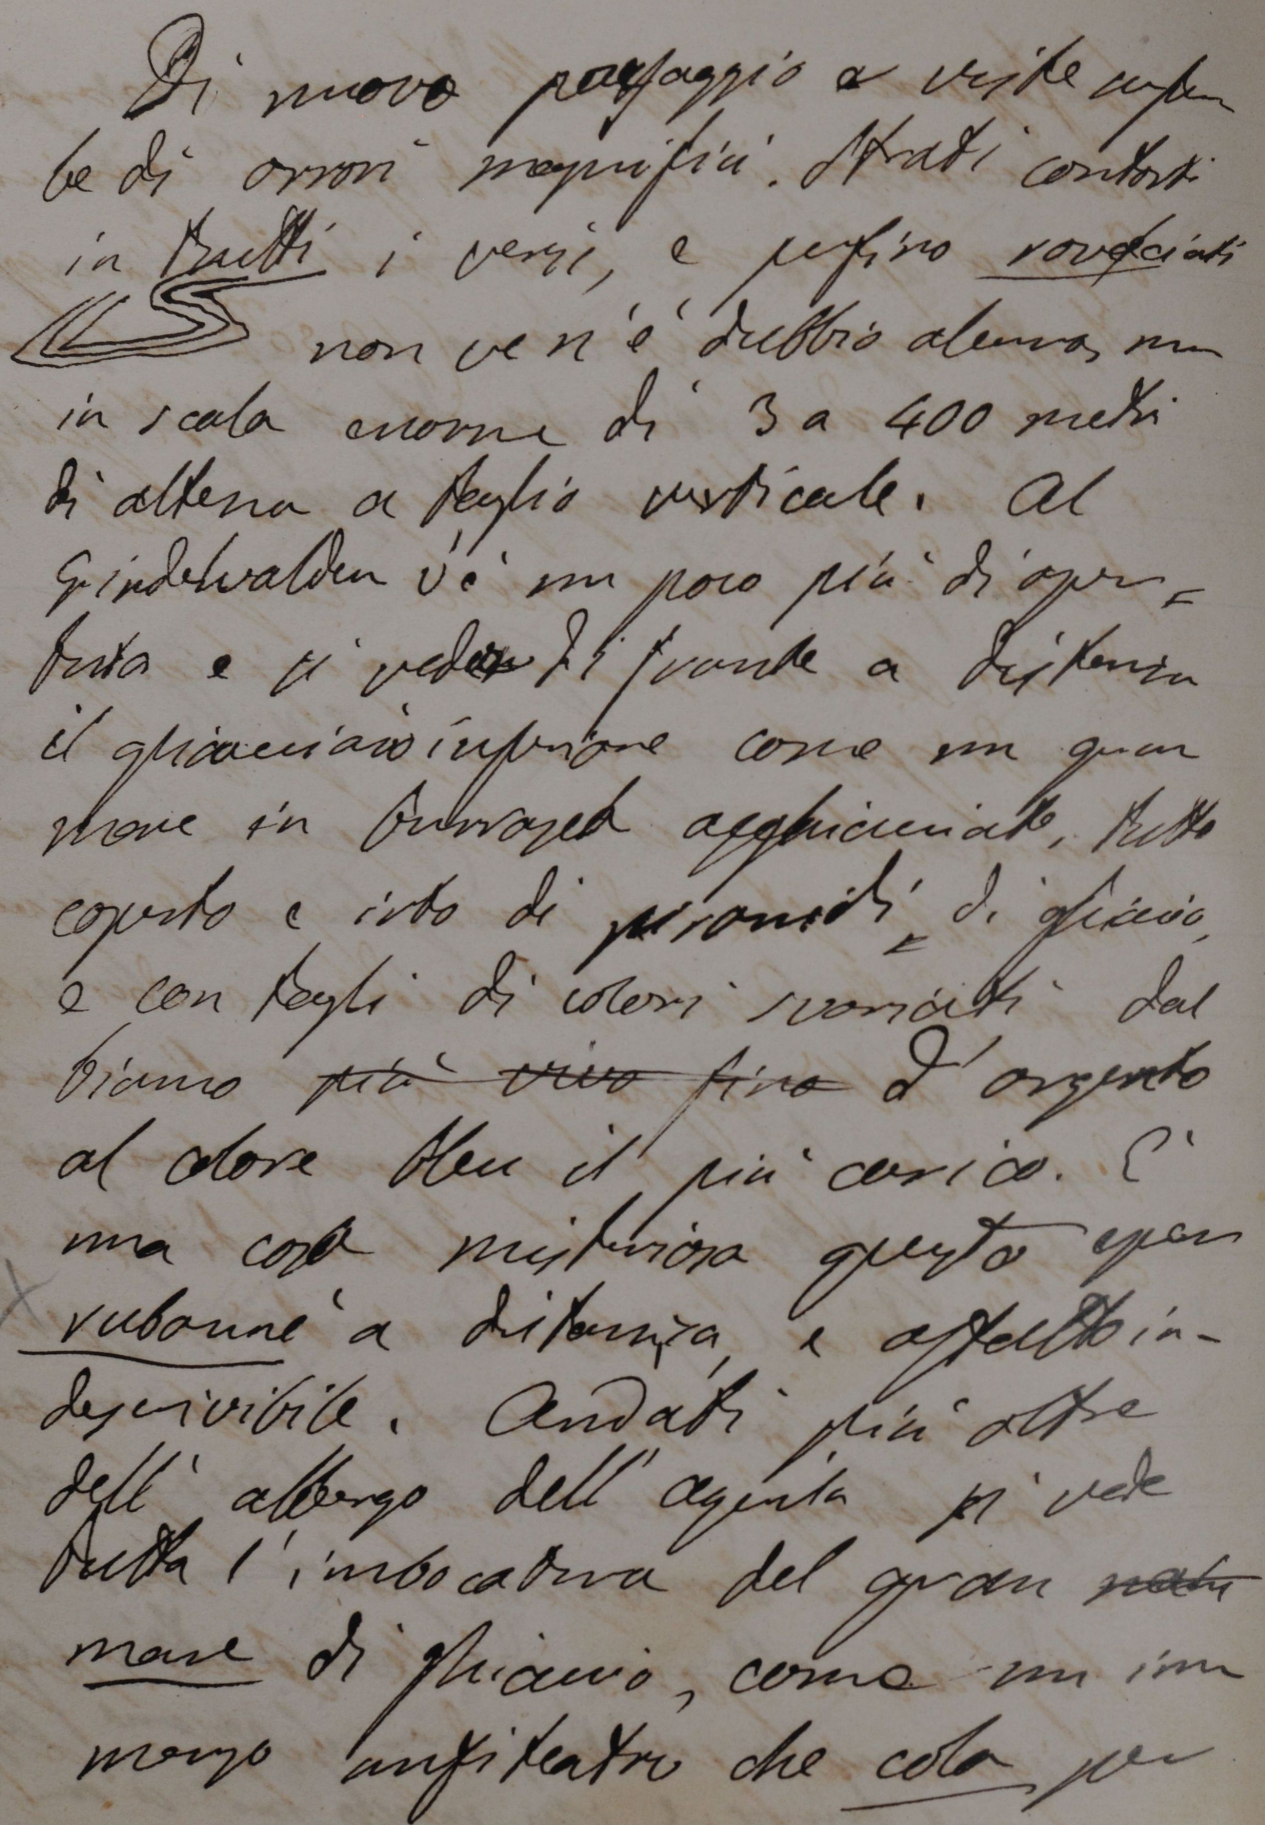 Di nuovo passaggio a viste super
be di orrori magnifici. Strati contorti
in tutti i versi, e perfino rovesciati
non ve n'è dubbio alcuno, ma
in scala enorme di 3 a 400 metri
di altezza a taglio verticale. Al
Grindelwalden v'è un poco più di aper=
tura e si vede di fronte a distanza
il ghiacciaio inferiore come un gran
mare in burrasca agghiacciato, tutto
coperto e irto di piramidi di ghiaccio,
e con tagli di colori svariati dal
bianco più vivo fino d'argento
al colore bleu il più carico. È
una cosa misteriosa questo
veduta a distanza, e affatto in-
descrivibile. Andati più oltre
dell'albergo dell'aquila si vede
tutta l'imboccatura del gran
mare di ghiaccio, come un im
menso anfiteatro che cola per